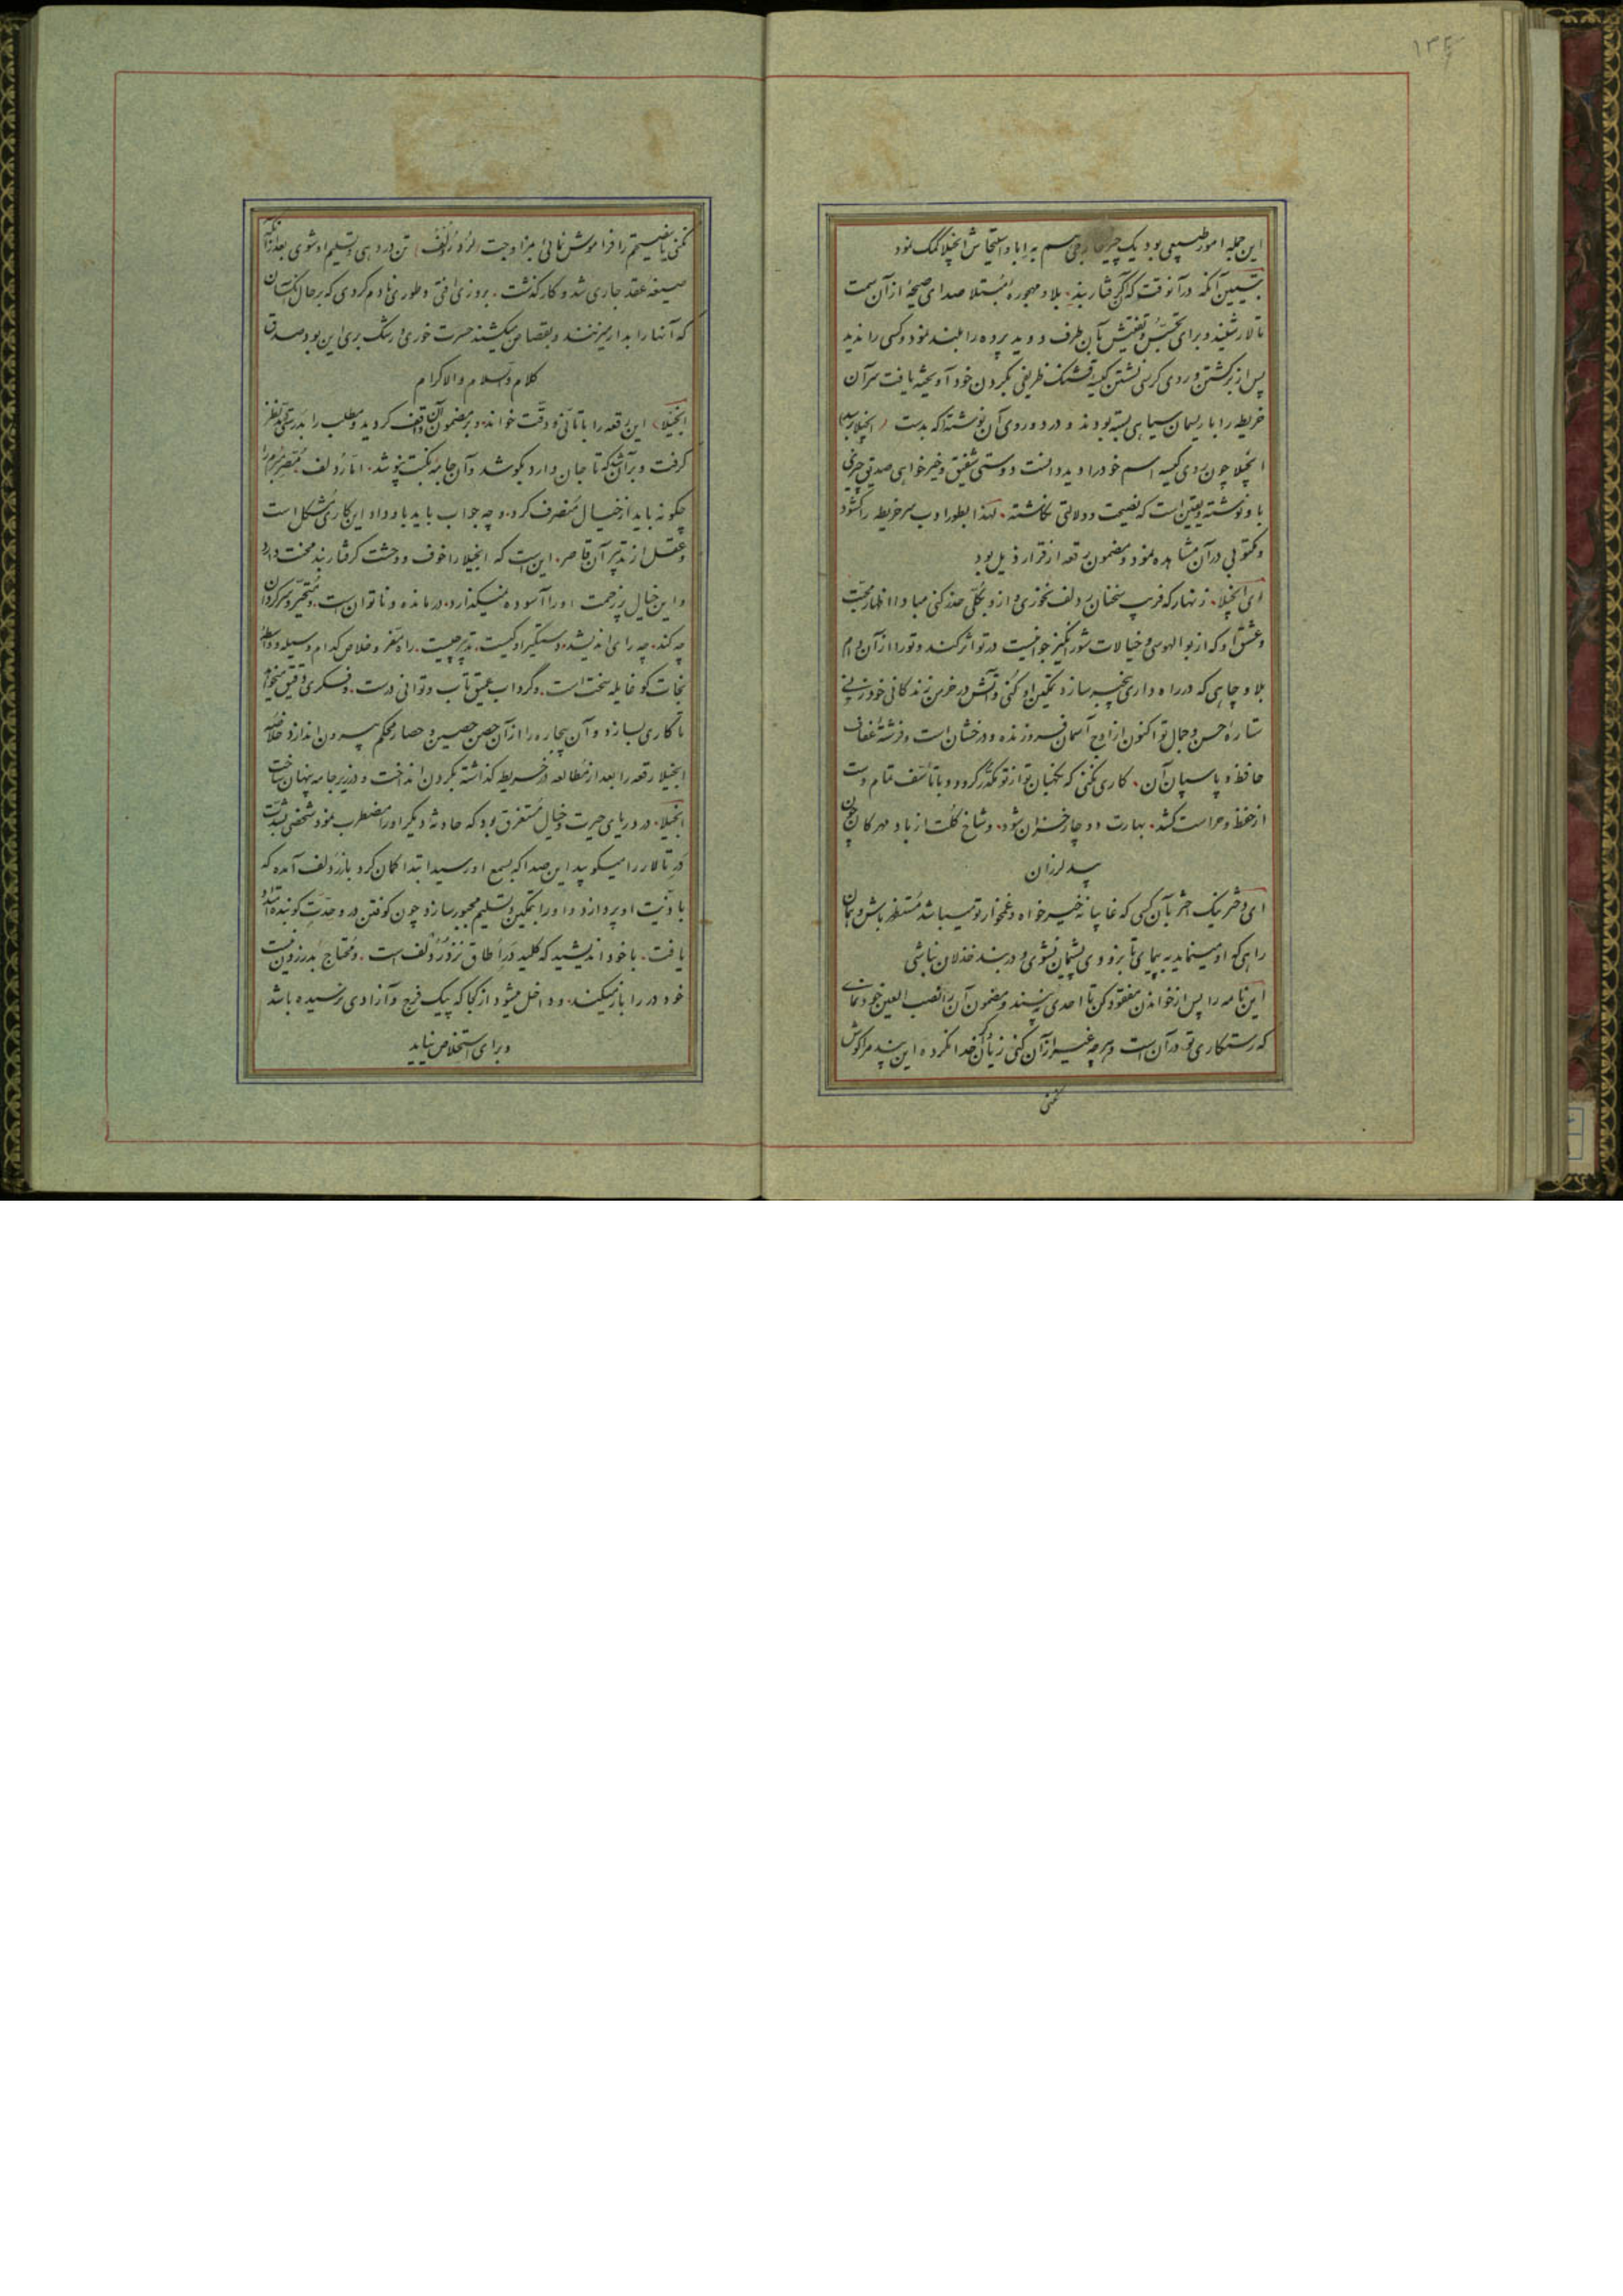 ۱۳۴
این جمله امور طبیعی بود یک چیز خارجی هم به ابا و استیحاش انجیلا کمک نمود
تبیین آنکه در آنوقت که آن گرفتار بند بلا و مهجوره مبتلا صدای صیحه از آن سمت
تالار شنید و برای تجسس و تفتیش بآن طرف دوید پرده را بلند نمود و کسی را ندید
پس از برگشتن و روی کرسی نشستن کیسه قشنگ ظریفی بگردن خود آویخته یافت سر آن
خریطه را با ریسمان سیاهی بسته بودند و در دو روی آن نوشته که بدست (انجیلا برسد)
انجیلا چون روی کیسه اسم خود را دید دانست دوستی شفیق و خیرخواهی صدیق چیزی
باو نوشته و یقین است که نصیحت و دلالتی نگاشته، لهذا بطور ادب سر خریطه را گشود
و مکتوبی در آن مشاهده نمود و مضمون رقعه از قرار ذیل بود
ای انجیلا، زنهار که فریب سخنان ردلف نخوری و از و بکلی حذر کنی مبادا اظهار محبت
و عشق او که از بوالهوسی و خیالات شورانگیز جوانیست در تو اثر کند و تو را از آن دام
بلا و چاهی که در راه داری بیخبر سازد تمکین او کنی و آتش در خرمن زندگانی خود زنی
ستاره حسن و جمال تو اکنون از اوج آسمان فروزنده و درخشان است و فرشته عفاف
حافظ و پاسبان آن، کاری نکنی که نگهبان تو از تو مکدر گردد و با تأسف تمام دست
از حفظ و حراست کشد، بهارت دوچار خزان شود، و شاخ گلت از باد مهرگان چون
بید لرزان
ای دختر نیک اختر بآن کسی که غایبانه خیرخواه و غمخوار تو میباشد مستظهر باش و همان
راهی که او مینماید بپیمای تا بزودی پشیمان نشوی و در بند خذلان نباشی
این نامه را پس از خواندن مفقود کن تا احدی نبیند و مضمون آن را نصب العین خود نمای
که رستگاری تو در آن است و هرچه غیر از آن کنی زیان، خدا نکرده این پند مرا گوش
نکنی
نکنی یا نصیحتم را فراموش نمائی بمزاوجت (لرد ردلف) تن در دهی و تسلیم او شوی بعد از آنکه
صیغه عقد جاری شد و کار گذشت، بروزی افتی و طوری نادم گردی که بر حال کسان
که آنها را بدار میزنند و بقصاص میکشند حسرت خوری و رشک بری این بود صدق
کلام والسلام والاکرام
(انجیلا) این رقعه را با تأنی و دقت خوانده و بر مضمون آن واقف گردید و مطلب را بدرستی در نظر
گرفت و بر آن شد که تا جان دارد بکوشد و آن جامه نکبت نپوشد، اما ردلف مصر مبرم را
چگونه باید از خیال منصرف کرد، و چه جواب باید باو داد این کاری مشکل است
و عقل از تدبیر آن قاصر، این است که انجیلا را خوف و وحشت گرفتار بند محنت دارد
و این خیال پر زحمت او را آسوده نمیگذارد، درمانده و ناتوان است، و متحیر و سرگردان
چه کند، چه رای اندیشد، دستگیر او کیست، تدبیر چیست، راه مفر و خلاص کدام وسیله و واسطه
نجات کو غایله سخت است، و گرداب عمیق تاب و توانی درست، و فکری دقیق میخواهد
تا کاری بسازد و آن بیچاره را از آن حصن حصین و حصار محکم بیرون اندازد خلاصه
انجیلا رقعه را بعد از مطالعه در خریطه گذاشته بگردن انداخت و در زیر جامه پنهان ساخت
انجیلا، در دریای حیرت و خیال مستغرق بود که حادثه دیگر او را مضطرب نمود شخصی بشدت
در تالار را میکوبید این صدا که بسمع او رسید ابتدا گمان کرد باز ردلف آمده که
باذیت او پردازد و او را بتمکین و تسلیم مجبور سازد و چون کوفتن در و حدت کوبنده امتداد
یافت، با خود اندیشید که کلید در اطاق نزد ردلف است، و محتاج بدر زدن نیست
خود در را باز میکند، و داخل میشود از کجا که پیک فرج و آزادی نرسیده باشد
و برای استخلاص نیاید